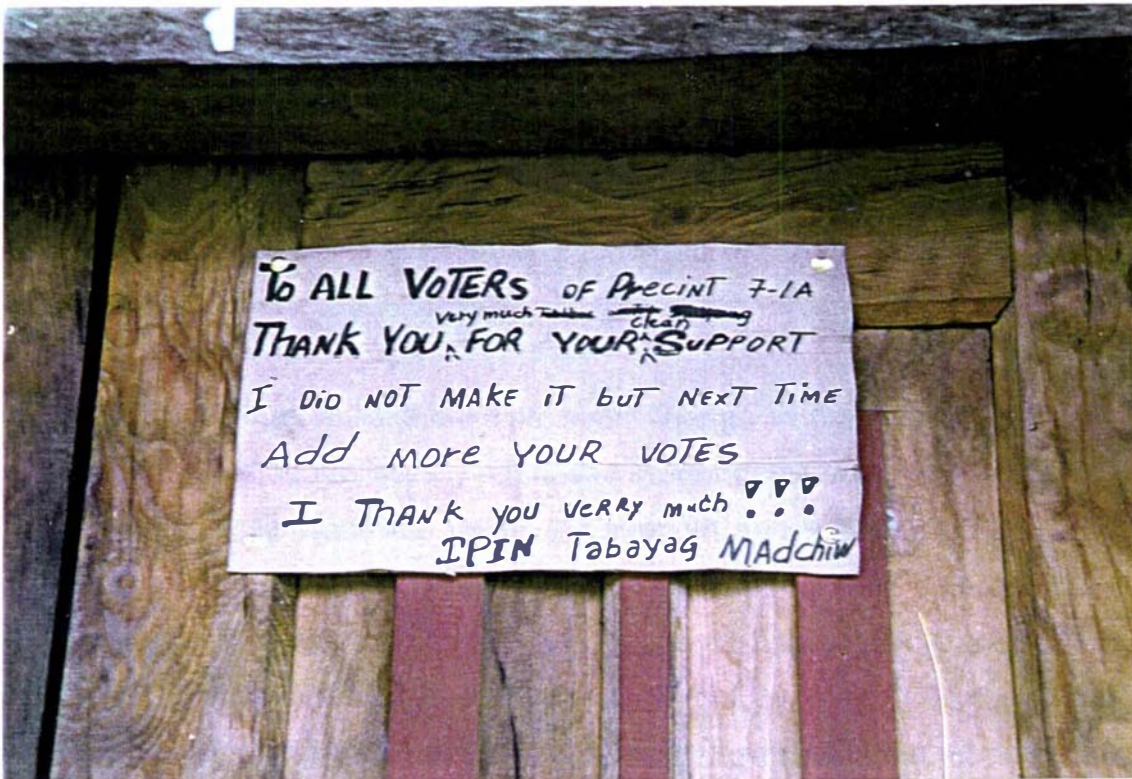 To ALL VOTERS OF PrecinT 7-1A
very much clean
THANK YOU FOR YOUR SUPPORT
I DiD NOT MAKE iT buT NEXT TiME
Add More YOUR VOTES
I THANK you VERRY much !!!
IPIN Tabayag MAdchiw